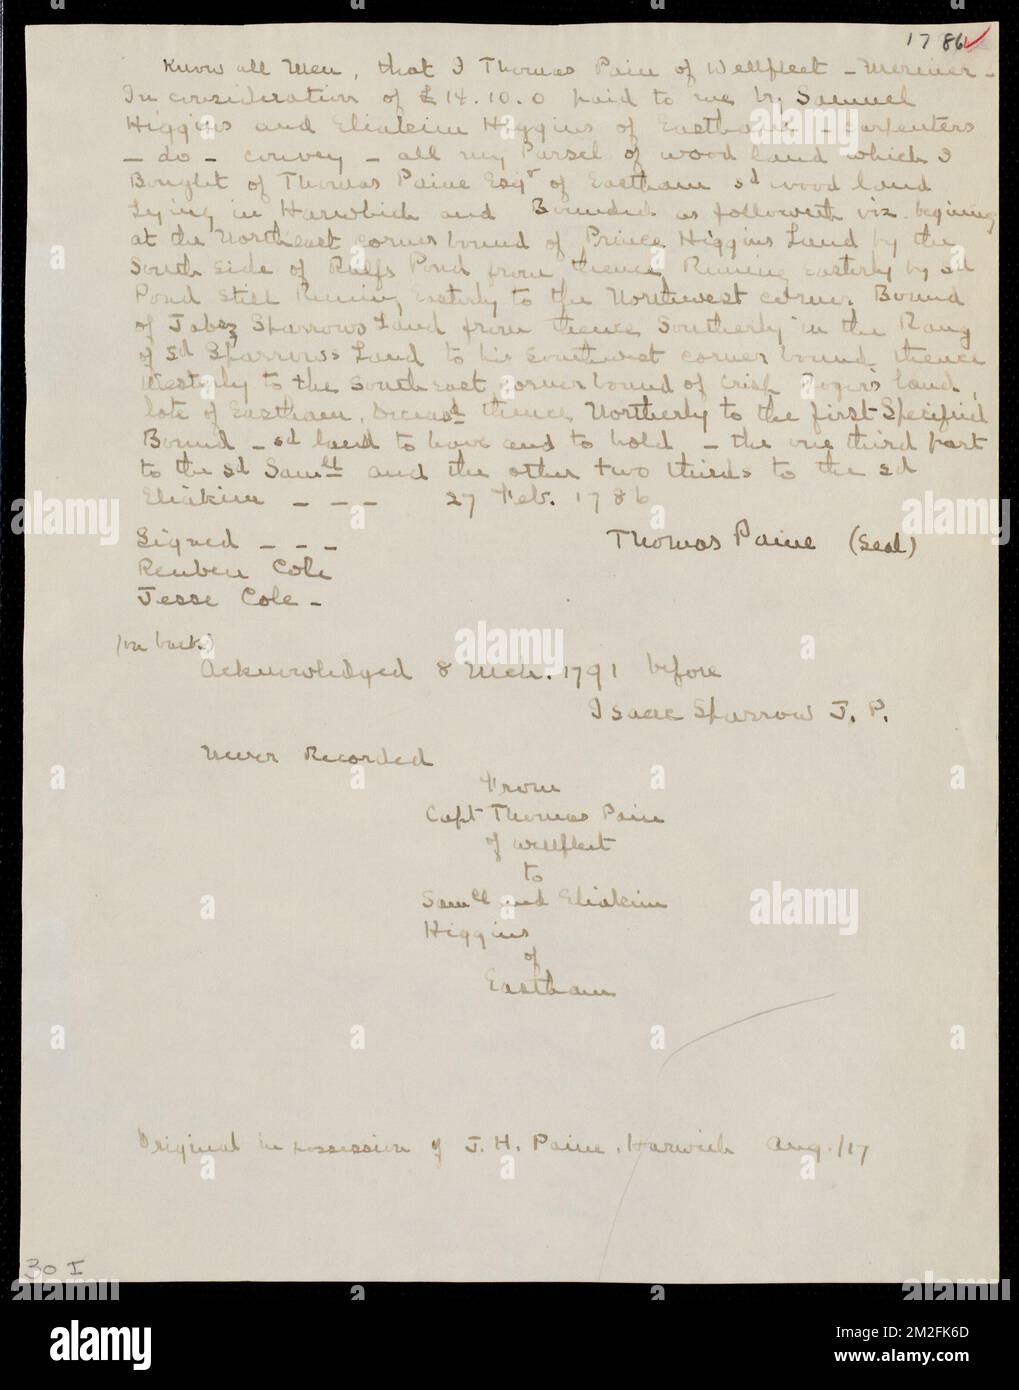 1786
Know all Men, that I Thomas Pain of Wellfleet - Meriner -
In consideration of £14.10.0 paid to me by Samuel
Higgins and Eliakim Higgins of Eastham - carpenters
- do - convey - all my Parsel of wood land which I
Bought of Thomas Paine Esqr of Eastham sd wood land
Lying in Harwhich and Bounded as followeth viz. begining
at the Northeast corner bound of Prince Higgins Land by the
South Side of Ralfs Pond from thence Runing easterly by sd
Pond still Runing Easterly to the Northwest corner Bound
of Jabez Sparrows Land from thence Southerly in the Rang
of sd Sparrows Land to his Southwest corner bound thence
Westerly to the South East corner bound of Crisp Rogers land
late of Eastham, Deceasd thence Northerly to the first Specified
Bound - sd land to have and to hold - the one third part
to the sd Samll and the other two thirds to the sd
Eliakim - - - 27 Feb. 1786
Signed - - - Thomas Paine (Seal)
Reuben Cole
Jesse Cole -
(on back)
Acknowledged 8 Mch. 1791 before
Isaac Sparrow J. P.
Never Recorded
From
Capt Thomas Pain
of Wellfleet
to
Samll and Eliakim
Higgins
of
Eastham
Original in possession of J. H. Paine, Harwich Aug./17
30 I
alamy
Image ID: 2M2FK6D
www.alamy.com